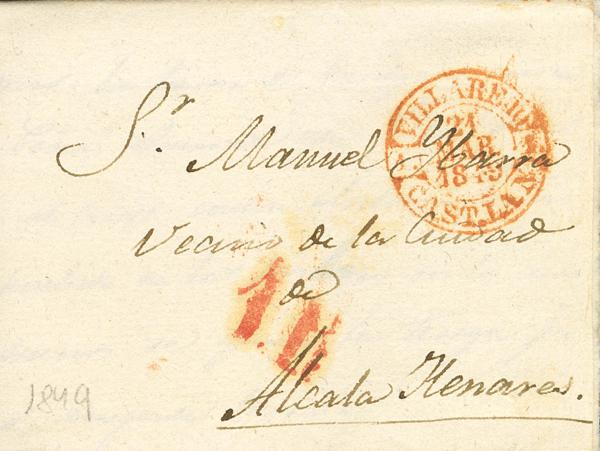 Sr Manuel Ybarra
Vecino de la Ciudad
de
Alcala Henares.
VILLAREJO
CAST. LA N.
1849